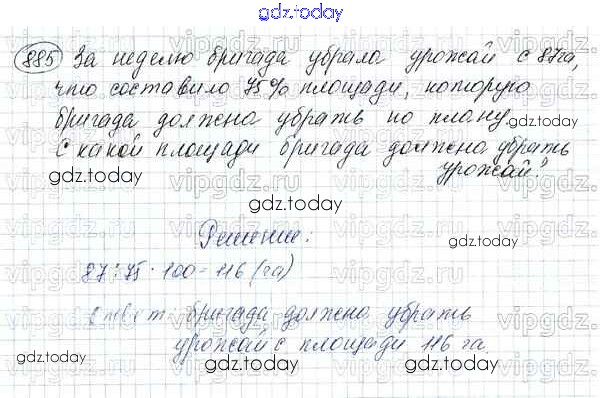 gdz.today
885 За неделю бригада убрала урожай с 87га,
что составило 75% площади, которую
бригада должна убрать по плану.
gdz.today
С какой площади бригада должна убрать
урожай?
gdz.today
gdz.today
Решение:
gdz.today
87:75·100=116(га)
Ответ: бригада должна убрать
урожай с площади 116 га.
gdz.today
gdz.today
gdz.today
vipgdz.ru